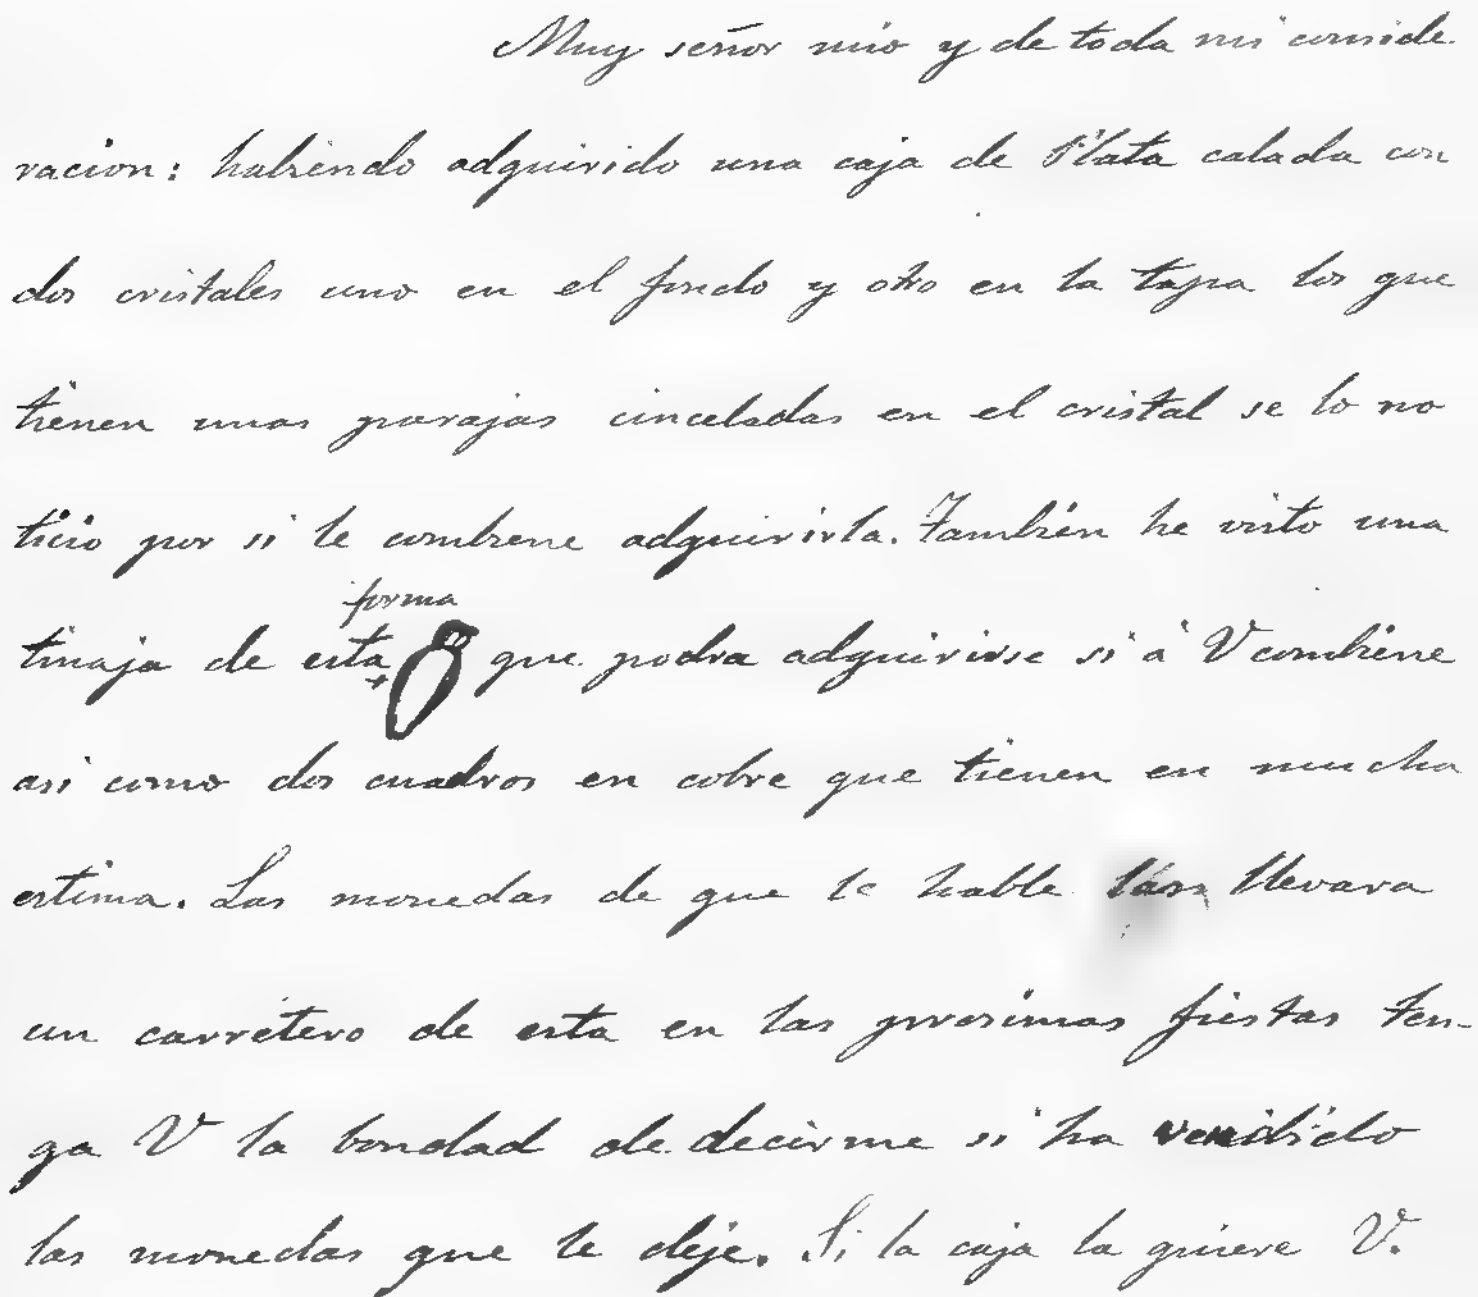 Muy señor mio y de toda mi conside
racion: habiendo adquirido una caja de Plata calada con
dos cristales uno en el fondo y otro en la tapa los que
tienen unas parajas cinceladas en el cristal se lo no
ticio por si le combiene adquirirla. También he visto una
forma
tinaja de esta que podra adquirirse si á V combiene
asi como dos cuadros en cobre que tienen en mucha
estima. Las monedas de que le hable las llevara
un carretero de esta en las procsimas fiestas ten-
ga V la bondad de decirme si ha vendido
las monedas que le deje. Si la caja la quiere V.